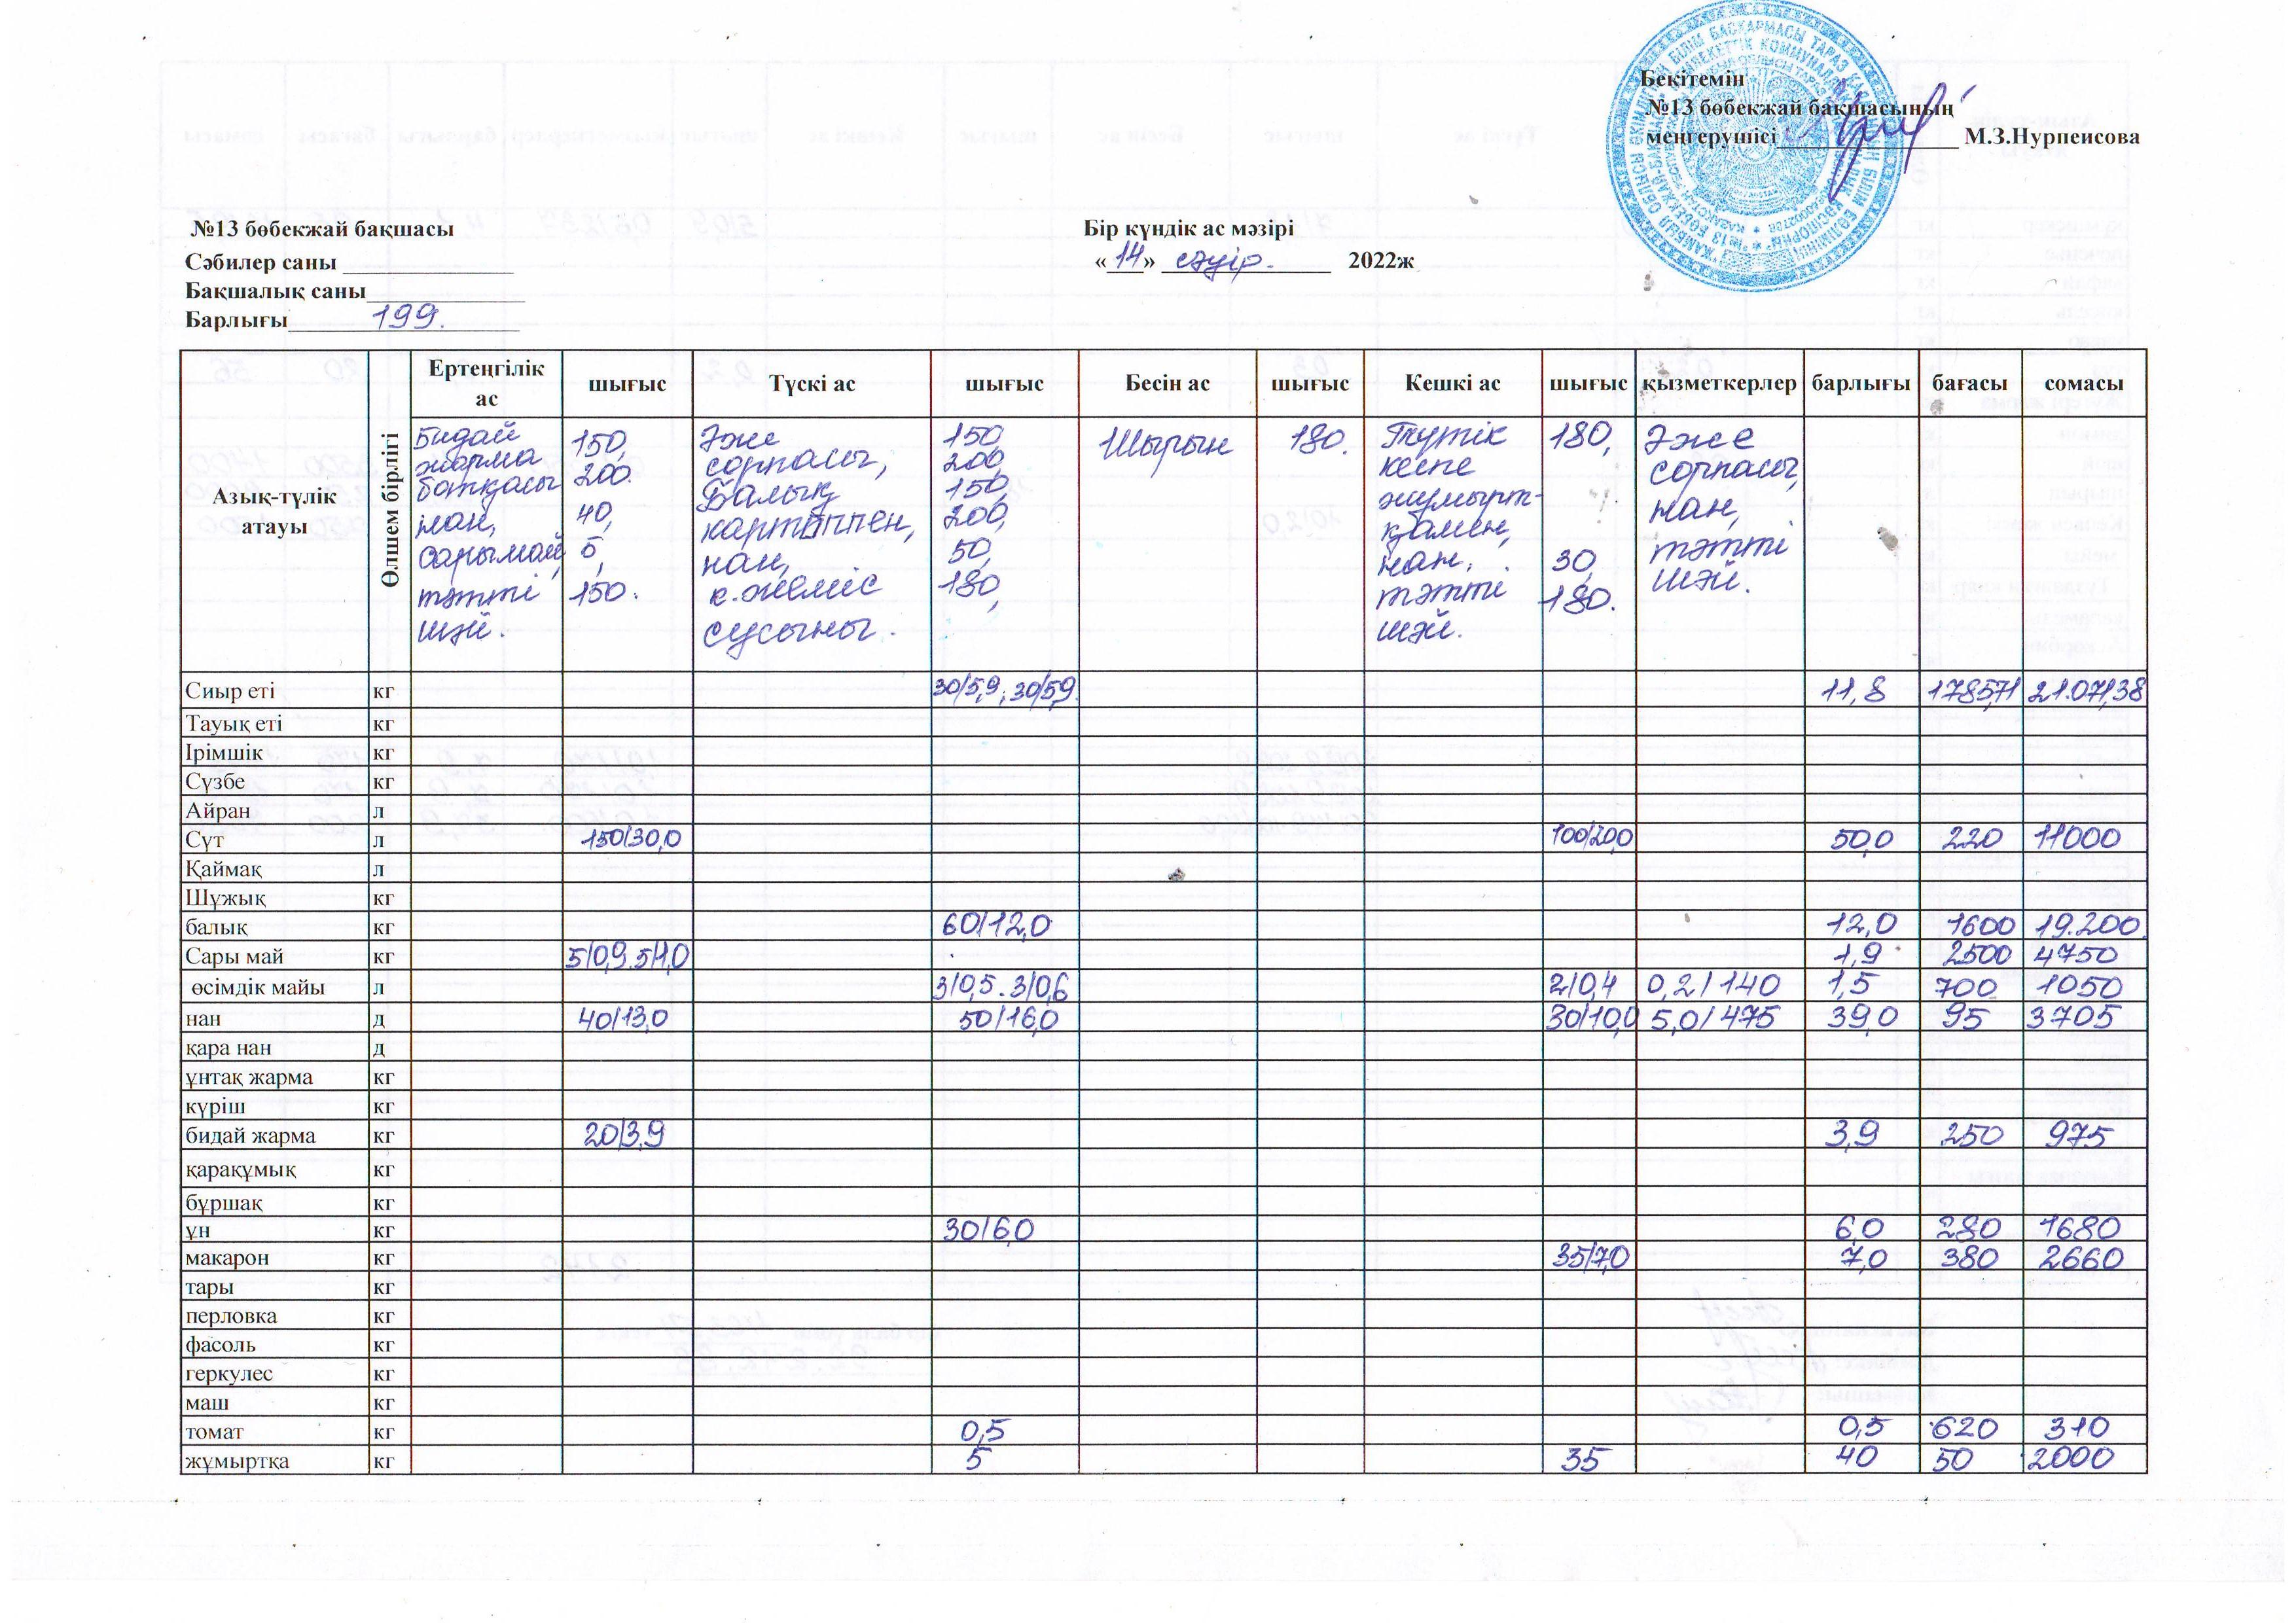 Бекітемін
№13 бөбекжай бақшасының
меңгерушісі______________ М.З.Нурпеисова
№13 бөбекжай бақшасы
Бір күндік ас мәзірі
Сәбилер саны ______________
«14» сәуір. 2022ж
Бақшалық саны_____________
Барлығы 199.
Азық-түлік атауы Өлшем бірлігі Ертеңгілік ас шығыс Түскі ас шығыс Бесін ас шығыс Кешкі ас шығыс қызметкерлер барлығы бағасы сомасы
Бидай жарма ботқасы нан, сарымай, тәтті шәй.
150, 200. 40, 5, 150.
Әже сорпасы, Балық картоппен, нан, к.жеміс сусыны.
150, 200, 150, 200, 50, 180,
Шырын
180.
Түтік кеспе жұмыртқамен, нан, тәтті шәй.
180, 30, 180.
Әже сорпасы, нан, тәтті шәй.
Сиыр еті кг 30/5,9; 30/5,9. 11,8 1785,71 21.071,38
Тауық еті кг
Ірімшік кг
Сүзбе кг
Айран л
Сүт л 150/30,0 100/20,0 50,0 220 11000
Қаймақ л
Шұжық кг
балық кг 60/12,0 12,0 1600 19.200.
Сары май кг 5/0,9. 5/1,0 1,9 2500 4750
өсімдік майы л 3/0,5. 3/0,6 2/0,4 0,2/140 1,5 700 1050
нан д 40/13,0 50/16,0 30/10,0 5,0/475 39,0 95 3705
қара нан д
ұнтақ жарма кг
күріш кг
бидай жарма кг 20/3,9 3,9 250 975
қарақұмық кг
бұршақ кг
ұн кг 30/6,0 6,0 280 1680
макарон кг 35/7,0 7,0 380 2660
тары кг
перловка кг
фасоль кг
геркулес кг
маш кг
томат кг 0,5 0,5 620 310
жұмыртқа кг 5 35 40 50 2000